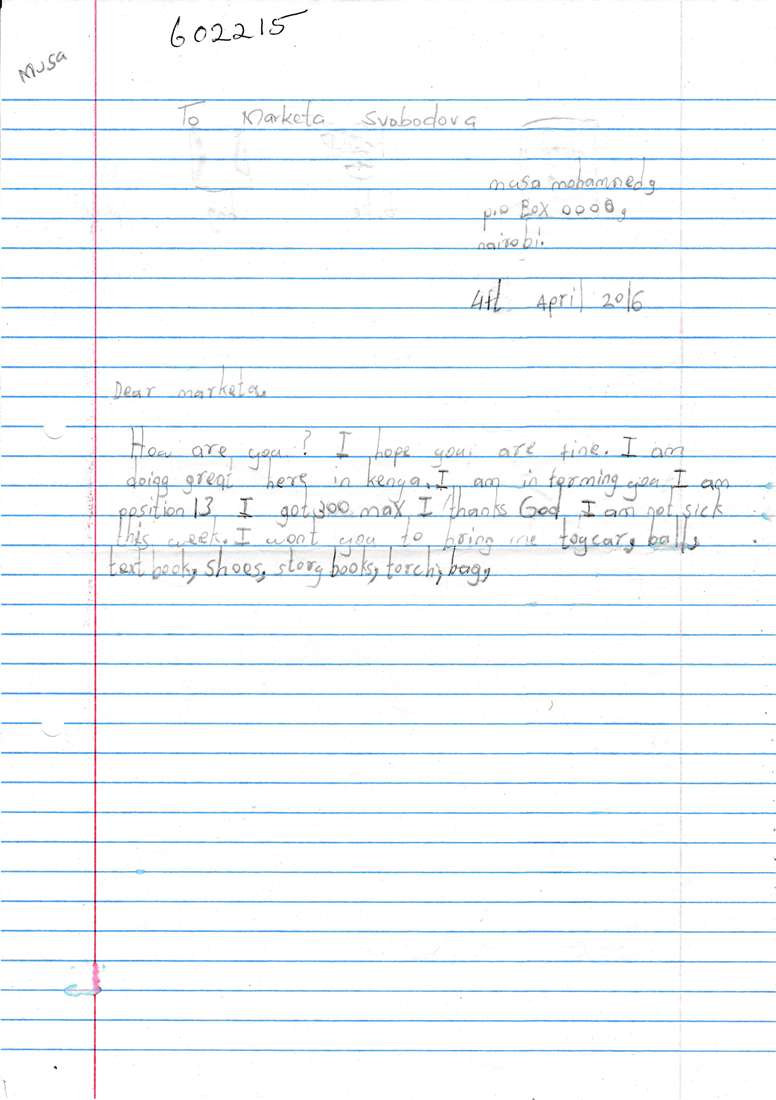 602215
Musa
To Marketa Svobodova
musa mohamned,
p.o Box 0000,
nairobi.
4th April 2016
Dear marketa,
How are you? I hope you are fine. I am
doigg great here in kenya. I am in forming you I am
position 13 I got 300 max I thanks God I am not sick
this week. I wont you to bring me toycar, ball,
text book, shoes, story books, torch, bag,